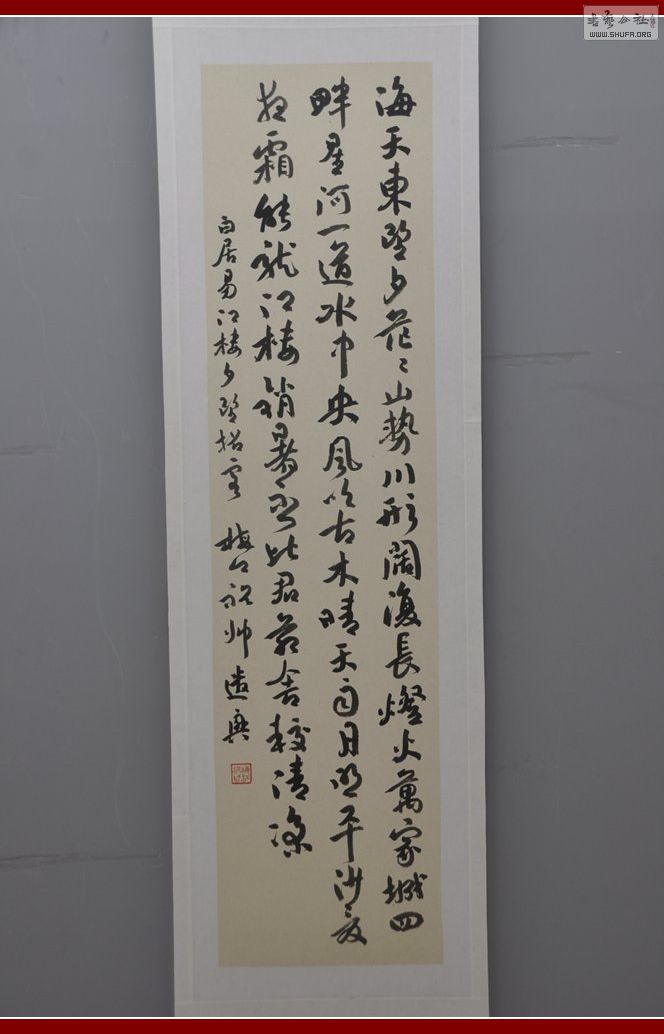 海天東望夕茫々山勢川形闊復長燈火萬家城四
畔星河一道水中央風吹古木晴天雨月照平沙夏
夜霜能就江樓銷暑否比君茅舍較清涼
白居易江樓夕望招客 梅 祝帅 遣興
书艺公社
WWW.SHUFA.ORG